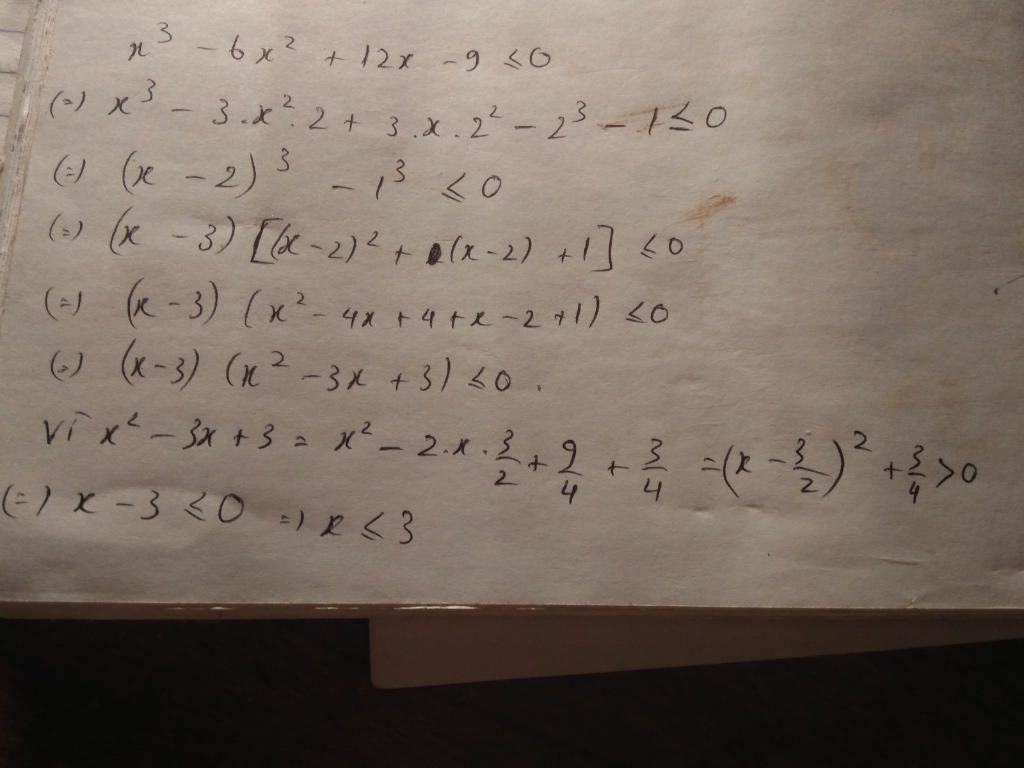 x³ - 6x² + 12x - 9 ≤ 0
(=) x³ - 3.x².2 + 3.x.2² - 2³ - 1 ≤ 0
(=) (x - 2)³ - 1³ ≤ 0
(=) (x - 3) [(x - 2)² + (x - 2) + 1] ≤ 0
(=) (x - 3) (x² - 4x + 4 + x - 2 + 1) ≤ 0
(=) (x - 3) (x² - 3x + 3) ≤ 0.
Vì x² - 3x + 3 = x² - 2.x.3/2 + 9/4 + 3/4 = (x - 3/2)² + 3/4 > 0
(=) x - 3 ≤ 0 =) x ≤ 3